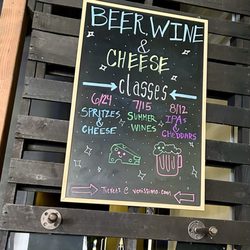 BEER, WINE
&
CHEESE
classes
6/24 7/15 8/12
SPRITZES & CHEESE
SUMMER WINES
IPAs & CHEDDARS
TICKETS @ venissimo.com